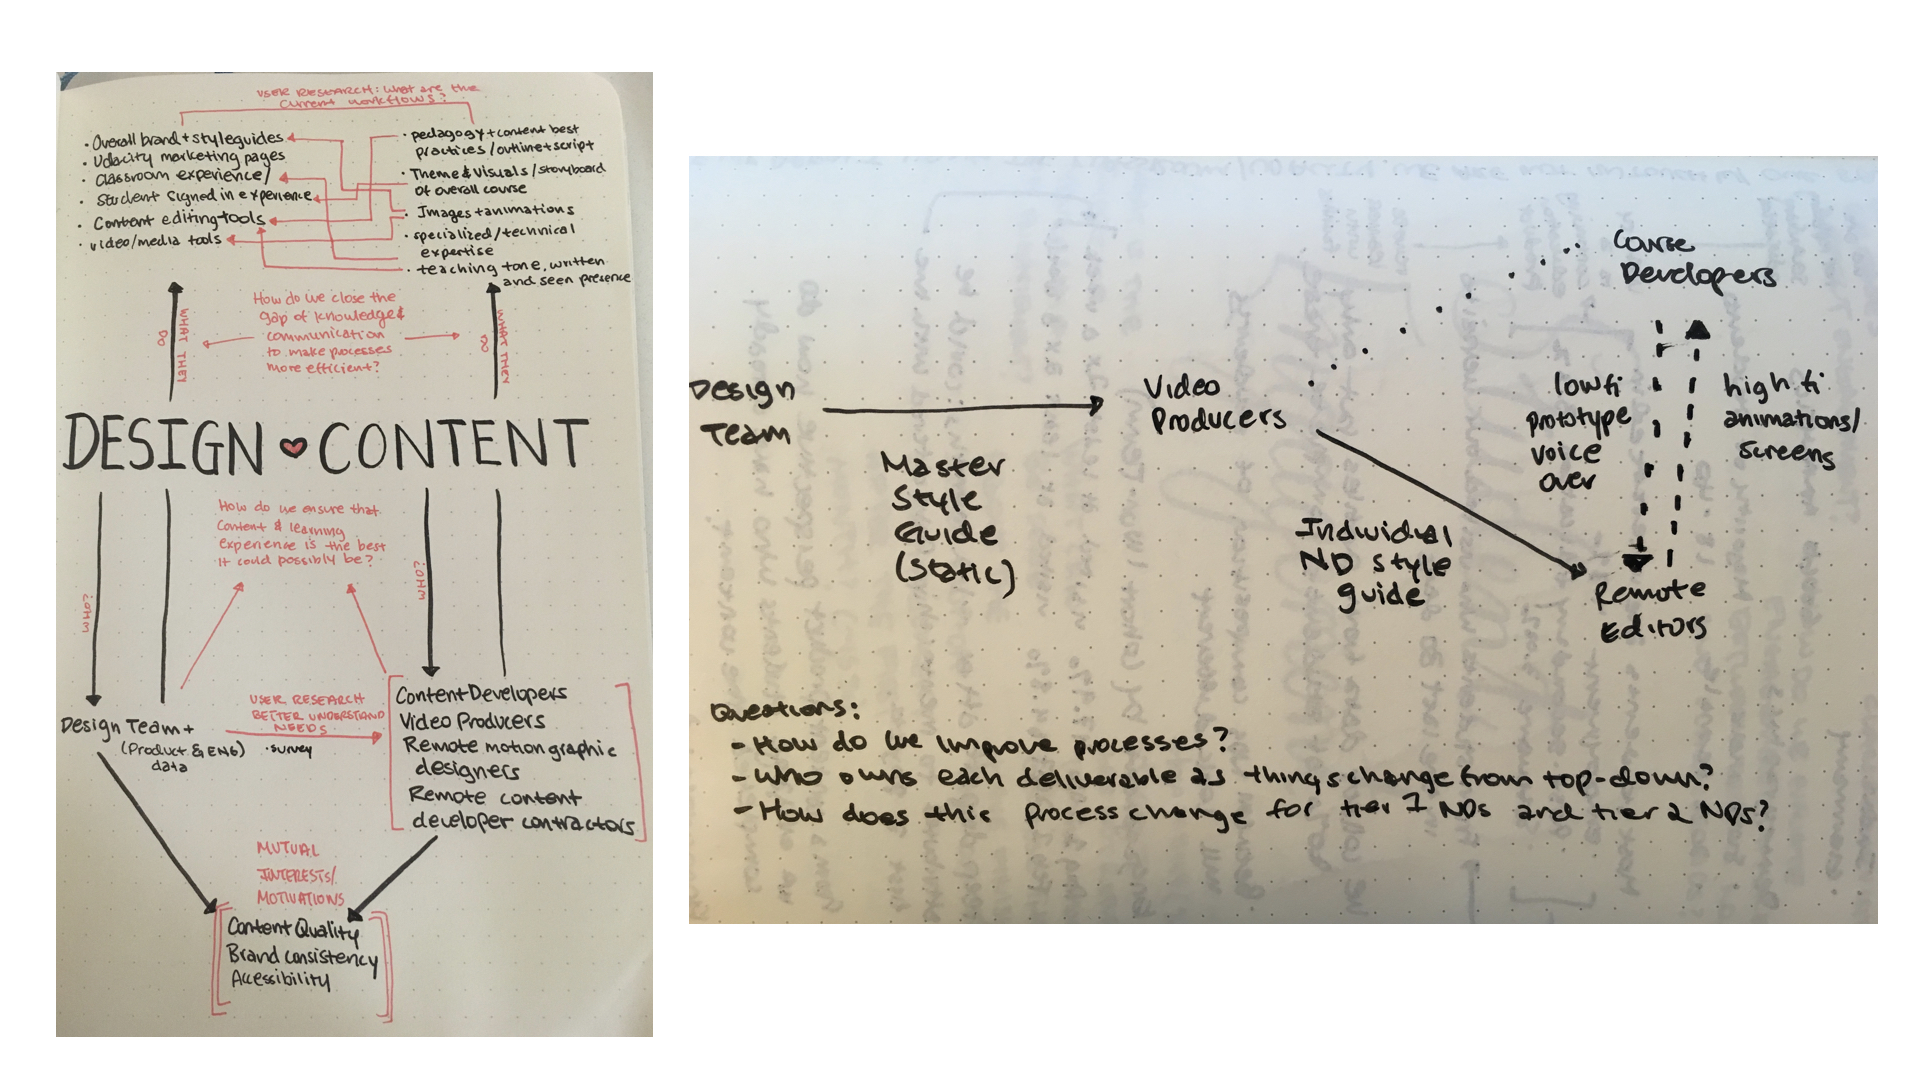 USER RESEARCH: What are the
current workflows?
· Overall brand + styleguides
· Udacity marketing pages
· Classroom experience/
· Student signed in experience
· Content editing tools
· video/media tools
· pedagogy + content best
practices/outline + script
· Theme & Visuals/storyboard
of overall course
· Images + animations
· specialized/technical
expertise
· teaching tone, written
and seen presence
WHAT THEY
DO
How do we close the
gap of knowledge &
communication
to make processes
more efficient?
WHAT THEY
DO
DESIGN ♥ CONTENT
How do we ensure that
content & learning
experience is the best
it could possibly be?
WHO?
WHO?
Design Team +
(Product & ENG)
data
USER RESEARCH
BETTER UNDERSTAND
NEEDS
· survey
Content Developers
Video Producers
Remote motion graphic
designers
Remote content
developer contractors
MUTUAL
INTERESTS/
MOTIVATIONS
Content Quality
Brand consistency
Accessibility
Design
Team
Master
Style
Guide
(Static)
Video
Producers
Individual
ND style
guide
Course
Developers
lowfi
prototype
voice
over
high fi
animations/
screens
Remote
Editors
Questions:
- How do we improve processes?
- Who owns each deliverable as things change from top-down?
- How does this process change for tier 1 NDs and tier 2 NDs?